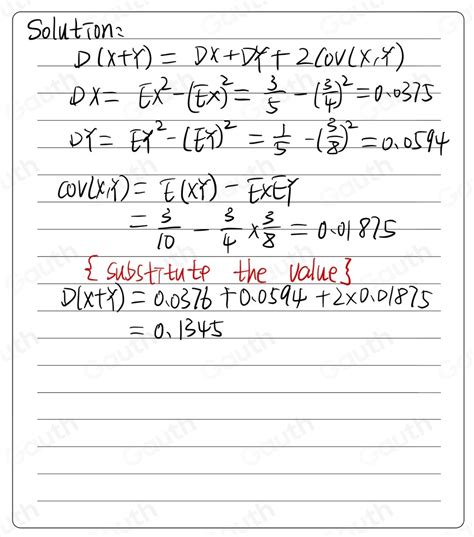 Solution:
D(X+Y) = DX+DY+2COV(X,Y)
DX = EX²-(EX)² = 3/5 - (3/4)² = 0.0375
DY = EY²-(EY)² = 1/5 - (3/8)² = 0.0594
COV(X,Y) = E(XY) - EXEY
= 3/10 - 3/4 × 3/8 = 0.01875
{substitute the value}
D(X+Y) = 0.0376 + 0.0594 + 2×0.01875
= 0.1345